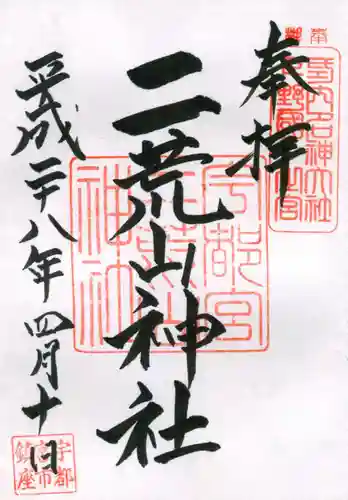 奉拝
延喜式内名神大社
下野國一之宮
二荒山神社
宇都宮
二荒山
神社
平成二十八年四月十日
宇都
宮市
鎮座